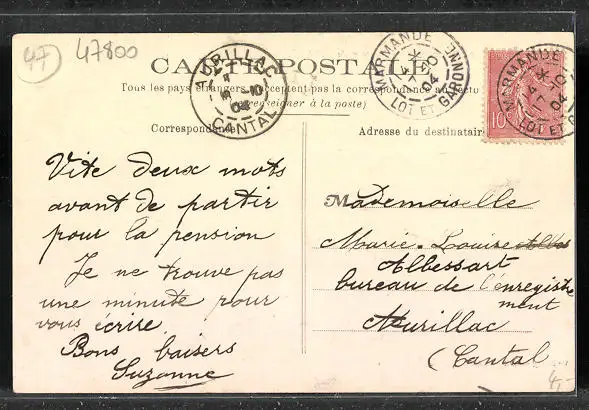 47 47800
CARTE POSTALE
Tous les pays étrangers n'acceptent pas la correspondance au recto
(se renseigner à la poste)
AURILLAC
CANTAL
MARMANDE
17 10
04
LOT ET GARONNE
10
MARMANDE
17 10
04
LOT ET G
Correspondance
Vite deux mots
avant de partir
pour la pension
Je ne trouve pas
une minute pour
vous écrire.
Bons baisers
Suzanne
Adresse du destinataire
Mademoiselle
Marie-Louise
Albessart
bureau de l'enregistre
ment
Aurillac
(Cantal